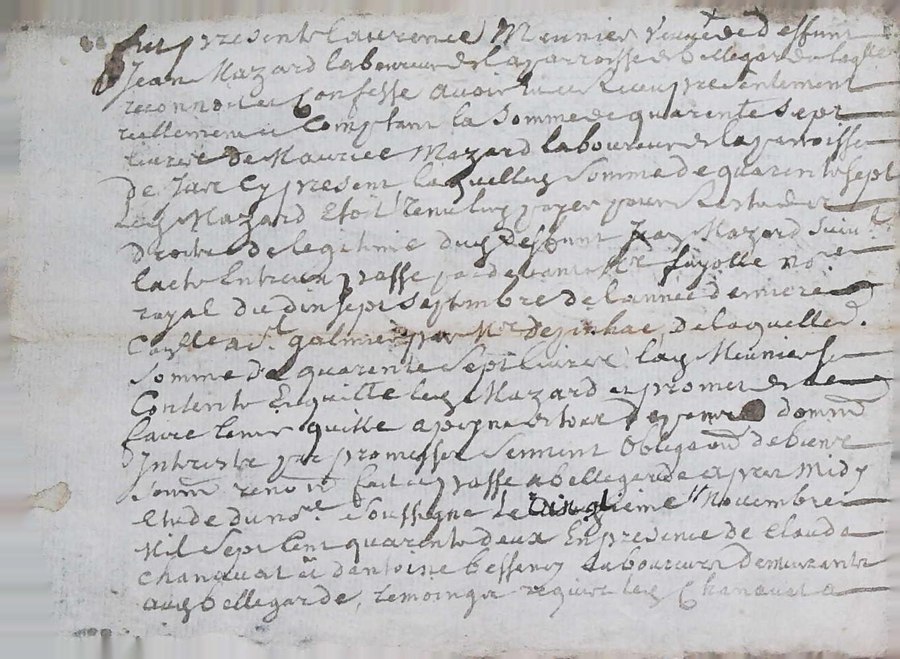 fut presente laurence Meunier veuve de deffunt
Jean Mazard laboureur de la parroisse de bellegarde laq.lle
reconnoit et Confesse avoir receu presentement
reellement et Comptant la somme de quarente sept
livres de Maurice Mazard laboureur de la parroisse
De Jax Cy present laquelle somme de quarente sept
led. Mazard Etoit tenu luy payer pour reste des
droits de legitime dud. deffunt Jean Mazard suiv.t
lacte Entreux passe pardevant M.e fayolle no.re
royal du dix sept septembre de l'année derniere
a S.t galmier par M.r de laquelle d.
somme de quarente sept livres lad. Meunier se
Contente En quitte led. Mazard et promet de le
faire tenir quitte a peyne de tous depens domm.
Intrests par promesse serment Oblig.on de biens
soum. renon. fait et passé a bellegarde apres Midy
Etude du no.re soussigne Le vingtieme Novembre
Mil sept Cent quarente deux En presence de Claude
Chanavat et d'antoine bessenay laboureurs demeurants
aud. bellegarde, temoings requis led. Chanavat a